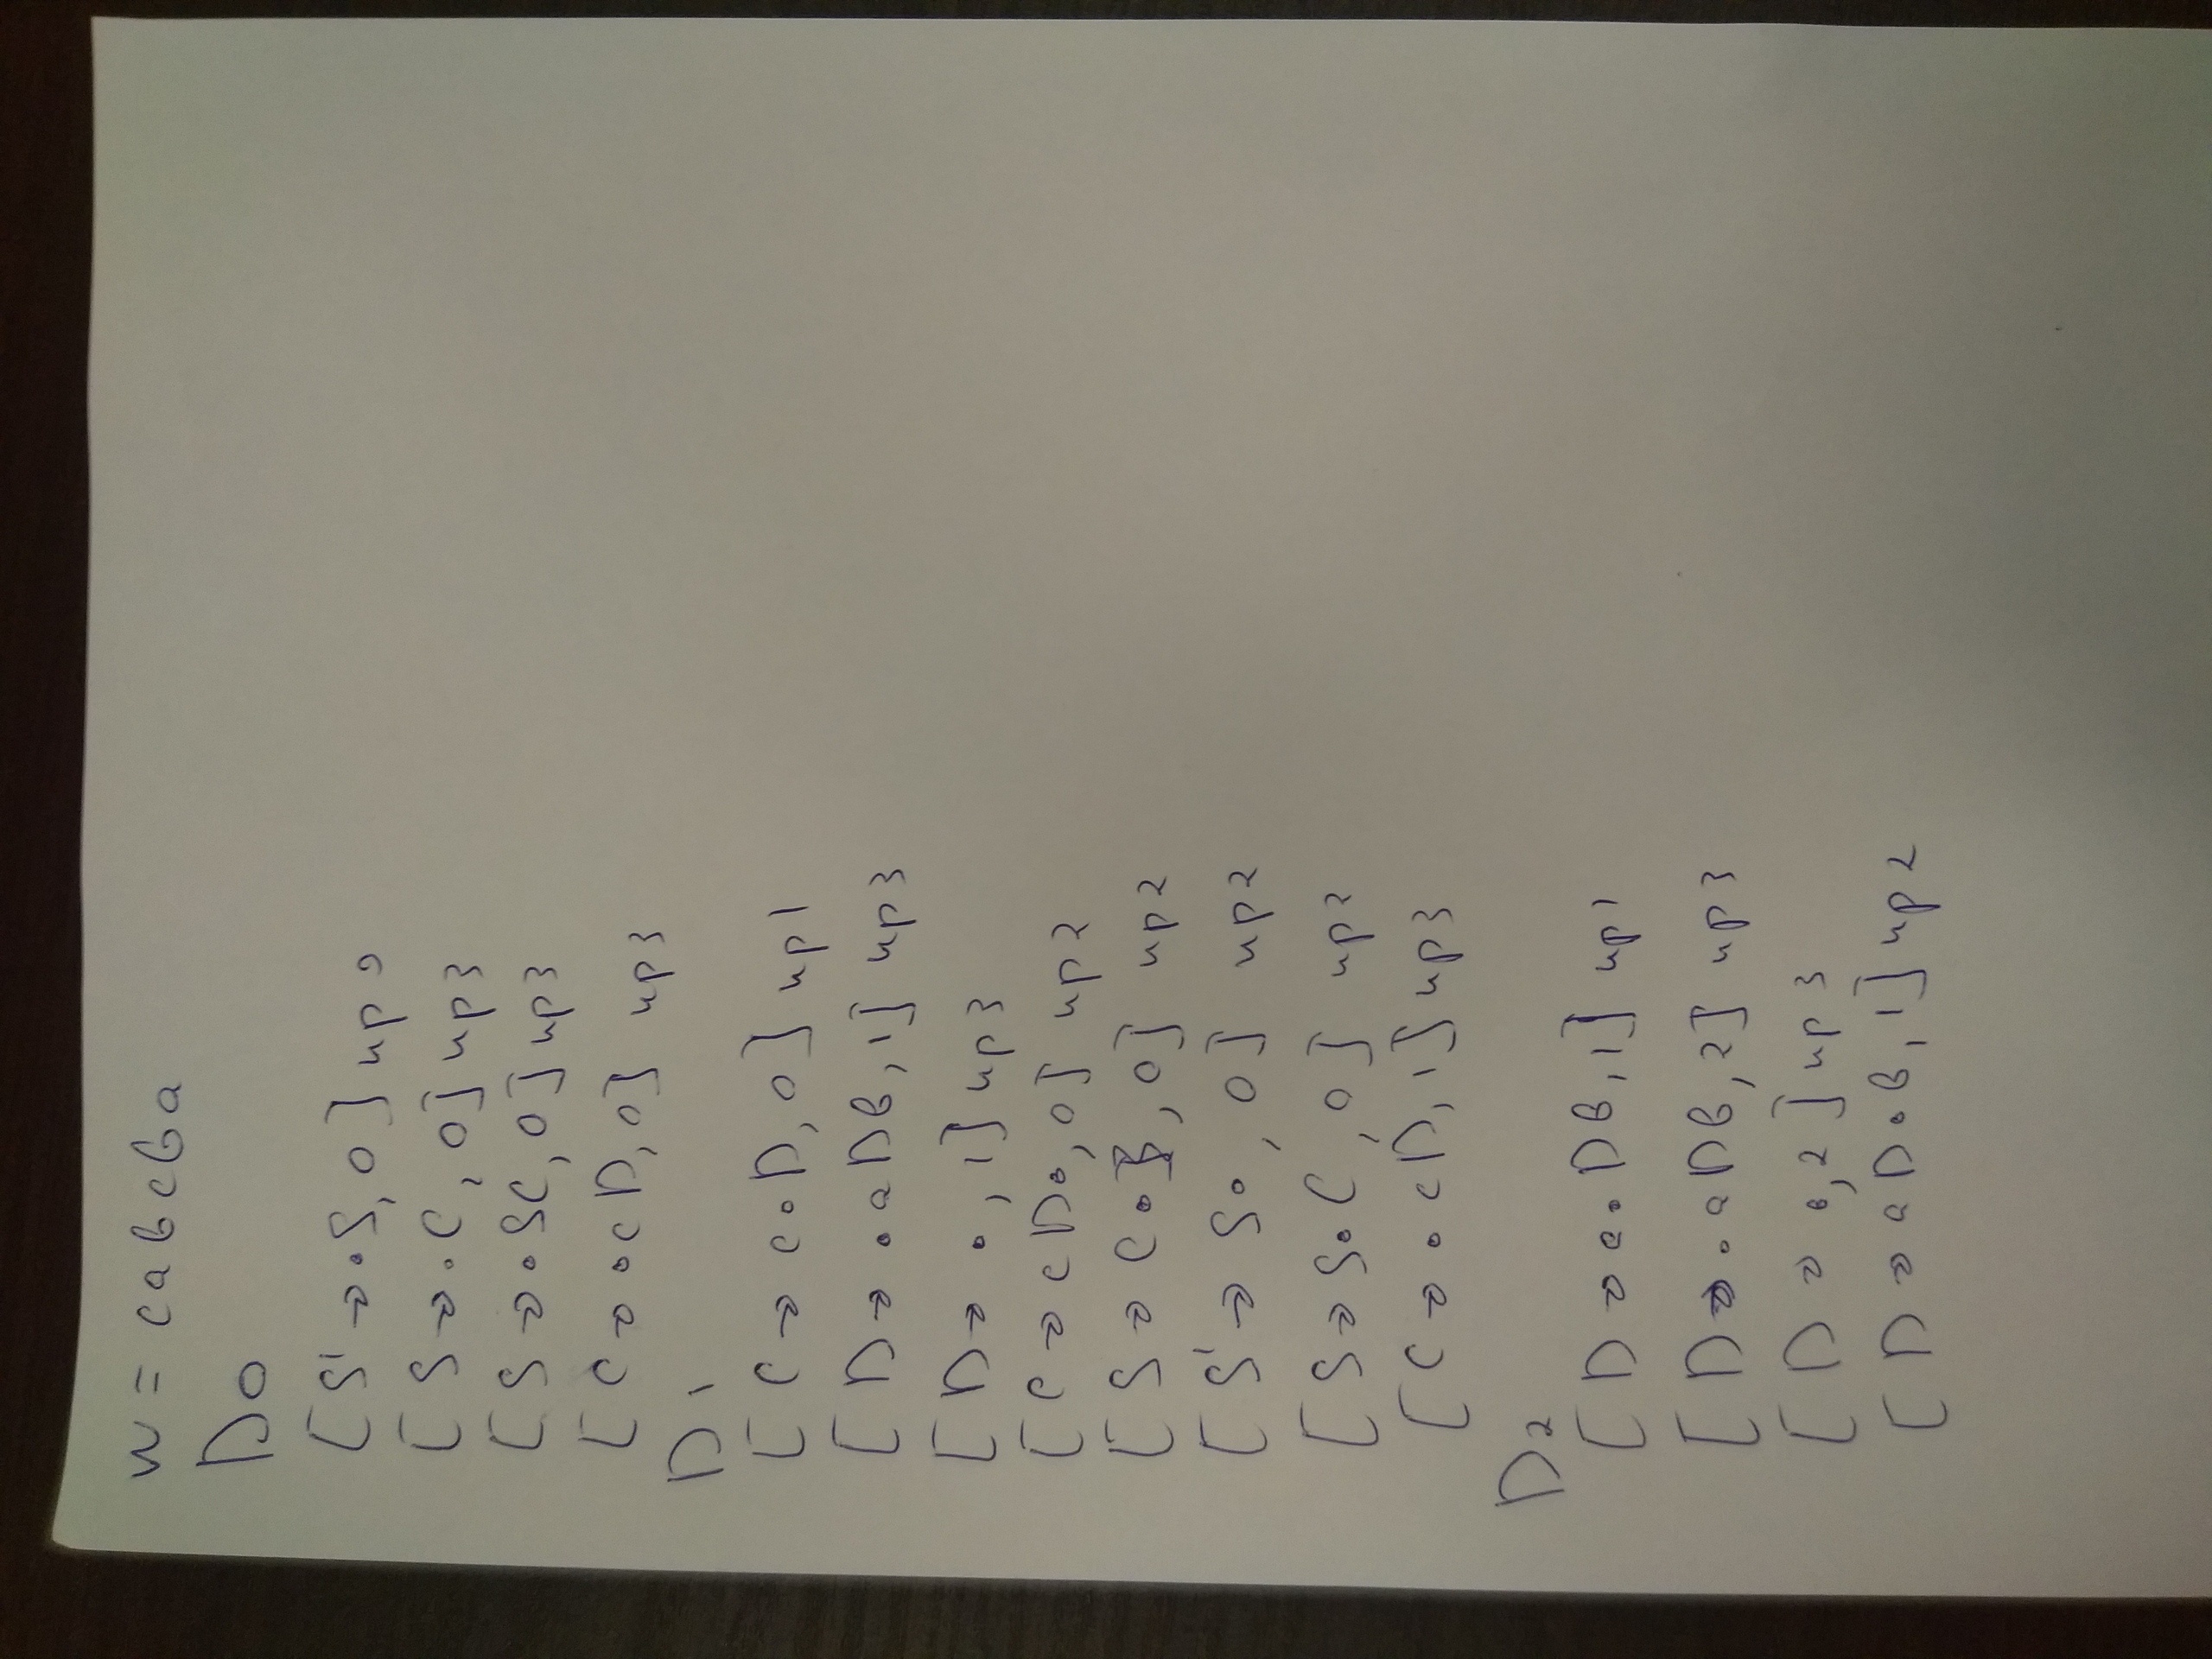 w = cabcba
D0
[S' → •S, 0] up 0
[S → •C, 0] up3
[S → •SC, 0] up3
[C → •cD, 0] up3
D1
[C → c•D, 0] up1
[D → •aDb, 1] up3
[D → •, 1] up3
[C → cD•, 0] up2
[S → C•, 0] up2
[S' → S•, 0] up2
[S → S•C, 0] up2
[C → •cD, 1] up3
D2
[D → a•Db, 1] up1
[D → •aDb, 2] up3
[D → •, 2] up3
[D → aD•b, 1] up2